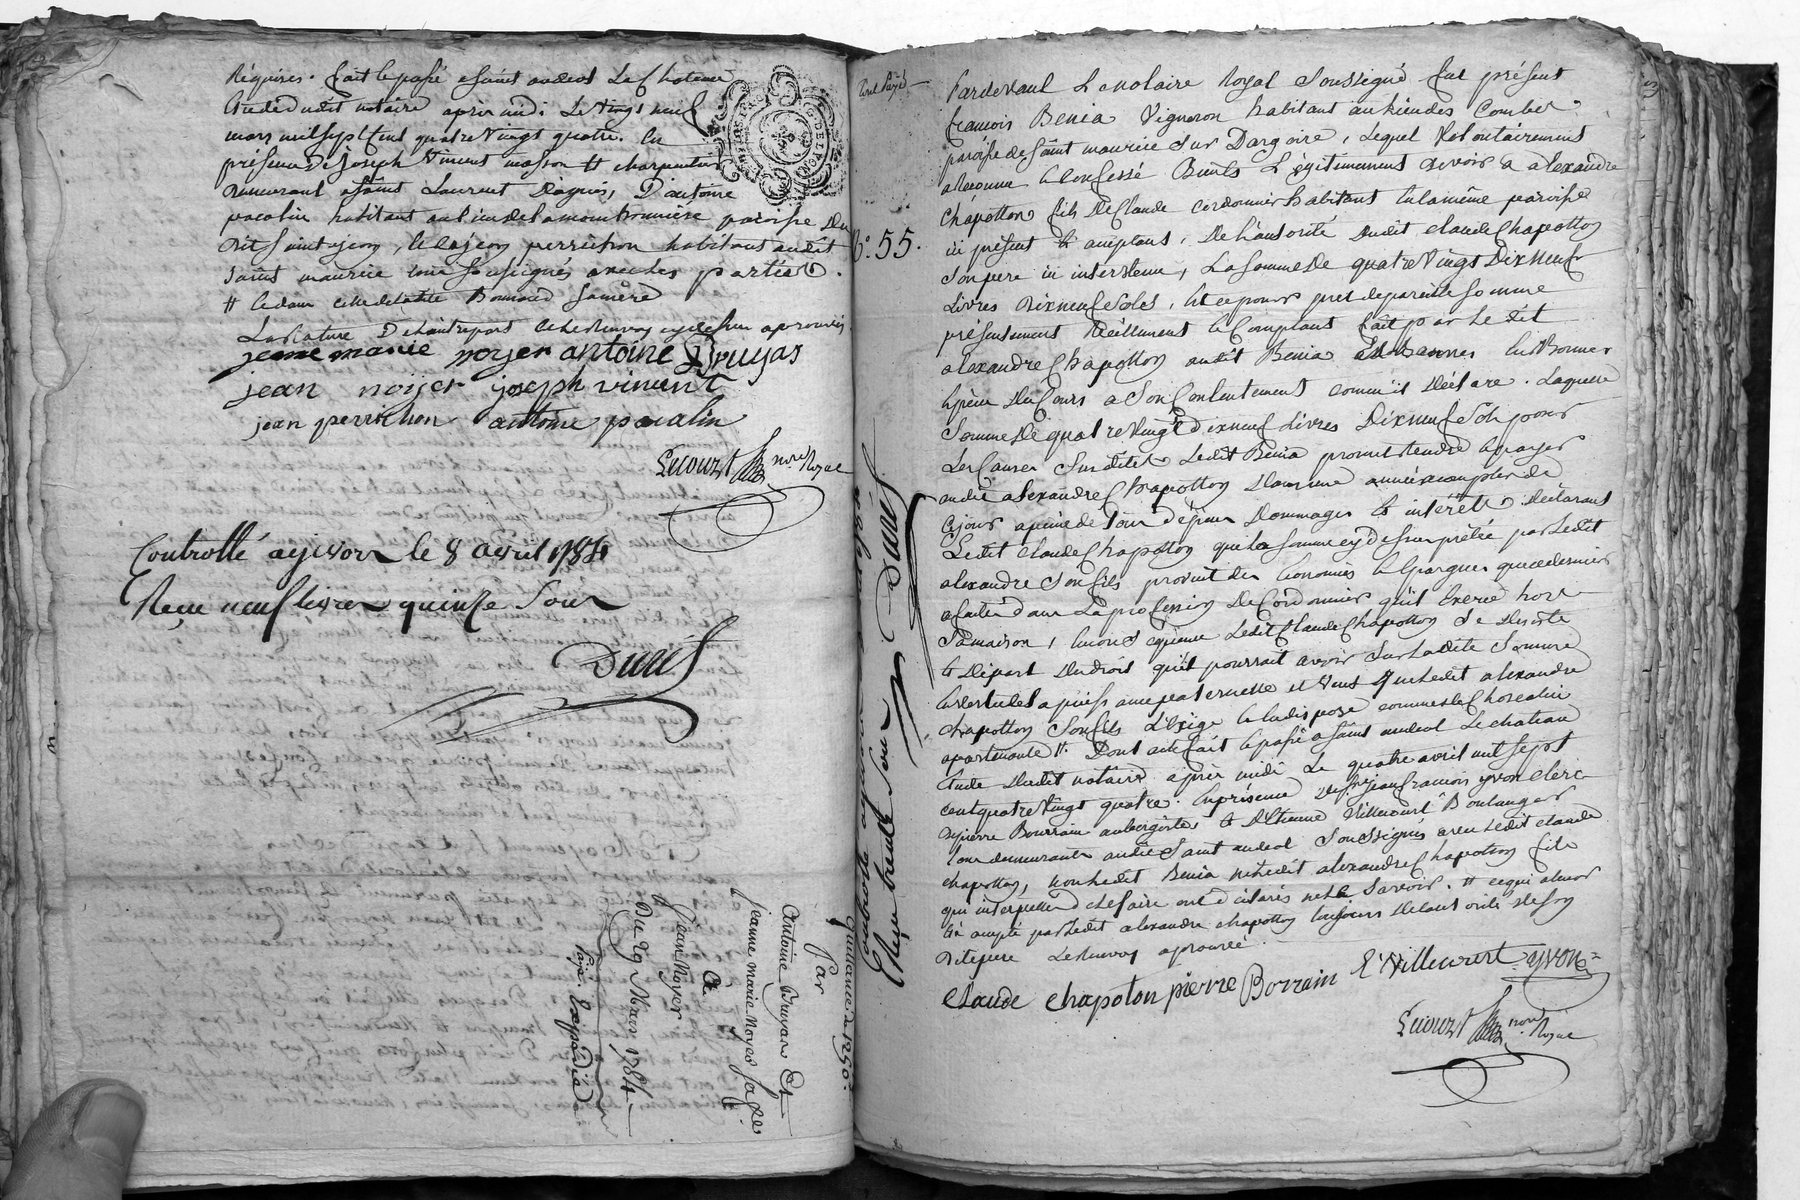 Requises. fait & passé a saint andeol Le Chateau
Etude dudit notaire après midi. Le vingt neuf
mars mil sept Cent quatre vingt quatre. En
présence de joseph Vincent masson # charpentier
demeurant a saint Laurent Dagnis, D'antoine
pacalin habitant au lieu de la mouronnière paroisse Du
dit saint jean, & de jean perrichon habitant audit
saint maurice tous soussignés avec les parties.
# & celle de laditte Bonnard sa mère
La Rature D'elautrepart & le Renvoy cy dessus aprouvés
jeane marie noyer antoine Drujas
jean noyer joseph vincent
jean perrichon antoine pacalin
Lecourt nore Royal
Controllé a givors le 8 avril 1784
Reçu neuf livres quinze Sous
Durel
quittance de 1250.#
Par
Antoine Bruyas Et
jeanne marie Noyer
A
jean Noyer
Du 29 Mars 1784
Payé. Expedié
N°. 55.
Controllé a givors
Reçu trente Sous
Durel
Pardevant Le notaire Royal Soussigné fut présent
francois Benia Vigneron habitant au lieu des Combes
paroisse de saint maurice sur Dargoire, Lequel Volontairement
a Reconnu & Confessé Bien & Légitimement devoir a alexandre
Chapotton fils de Claude cordonnier habitant en la même paroisse
ici présent & acceptant, de l'autorité dudit claude Chapotton
Son pere ici intervenu, La somme de quatre vingt Dix neuf
Livres Dix neuf Sols, Et ce pour pret de pareille Somme
présentement Réellement & Comptant fait par Le dit
alexandre Chapotton audit Benia En Bonnes
Espèces du Cours a Son Contentement comm'il Déclare. Laquelle
Somme de quatre Vingt dix neuf Livres Dix neuf Sols pour
Les Causes Susdites Ledit Benia promet Rendre & payer
audit alexandre Chapotton Dans une année a compter de
ce jour a peine de tous dépens Dommages & intérêts. Déclarant
Ledit Claude Chapotton que la somme cy dessus prêtée par Ledit
alexandre Son fils provient des Economies & Epargnes que ce dernier
a faites dans La profession de Cordonnier qu'il Exerce hors
Sa maison, Ledit Claude Chapotton Se Desiste
& Départ Du droit qu'il pourrait avoir Sur Ladite Somme
En vertu de la puissance paternelle et veut que Ledit alexandre
Chapotton Son fils L'exige & En dispose comme de Chose a lui
apartenante #. Dont acte fait & passé a Saint andeol Le chateau
Etude Dudit notaire après midi Le quatre avril mil sept
cent quatre Vingt quatre. En présence de Sr jean francois yvon clerc
de pierre Bourrain aubergiste, & D'Etienne Villecourt Boulanger
tous demeurants audit Saint andeol Soussignés avec Ledit Claude
Chapotton, non Ledit Benia ni Ledit alexandre Chapotton fils
qui interpellés de le faire ont déclaré ne le Savoir. # ce qui a
été accepté par Ledit alexandre chapotton toujours De l'autorité de son
dit pere Le Renvoy aprouvé
Claude chapoton pierre Borrain E. Villecourt yvon
Lecourt nore Royal